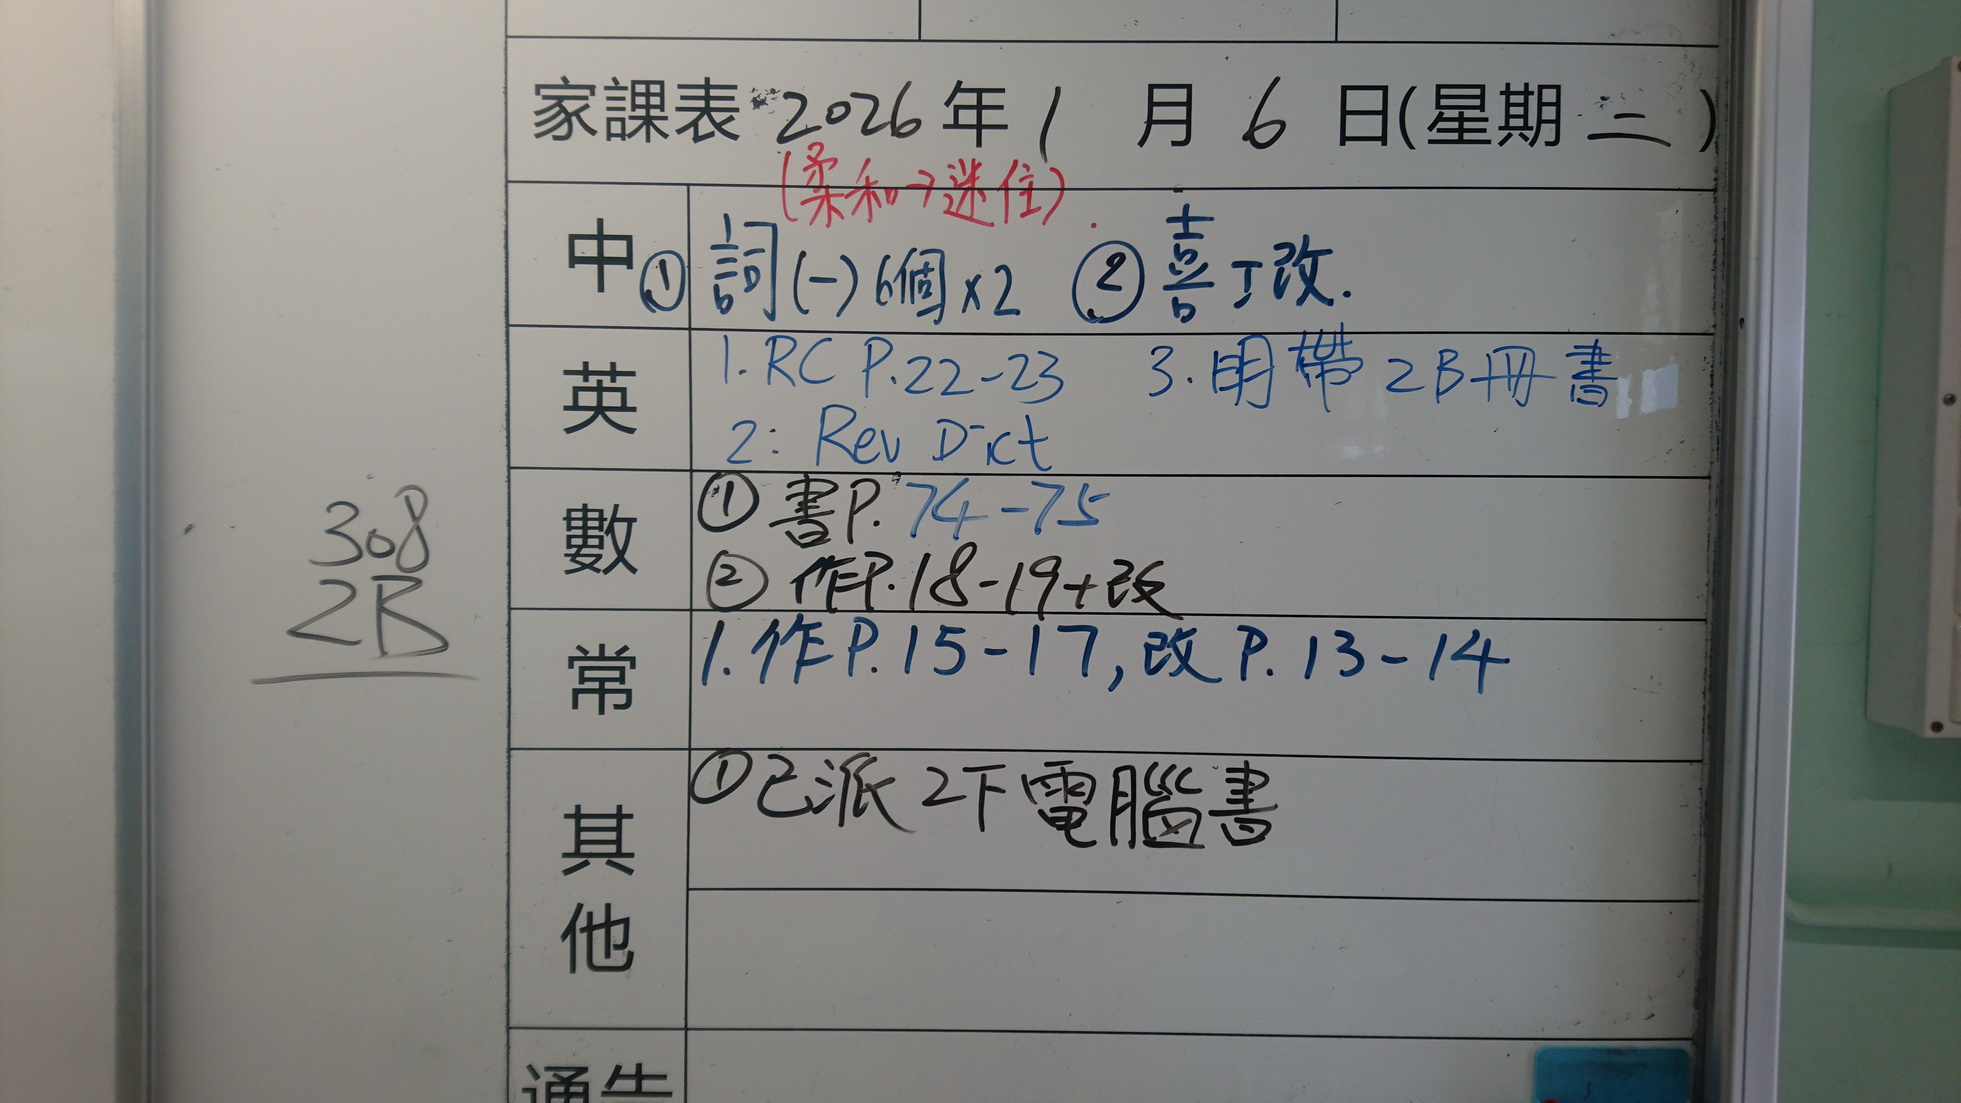 家課表 2026年1月6日(星期二)
(柔和→迷住)
中 ① 詞(一)6個×2 ② 喜丁改.
英 1. RC P.22-23 3. 明帶2B冊書
2: Rev Dict
數 ① 書P.74-75
② 作P.18-19+改
常 1. 作P.15-17, 改P.13-14
其他 ① 已派2下電腦書
通告
308
2B